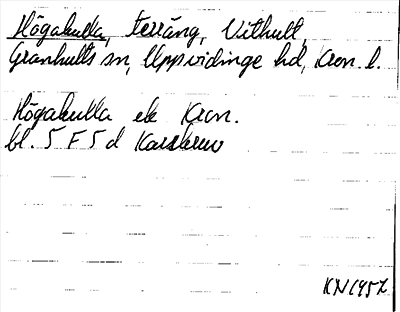 Högakulla, terräng, Vithult,
Granhults sn, Uppvidinge hd, Kron. l.
Högakulla ek Kron.
bl. 5 F 5 d
KN 1957